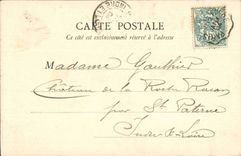 CARTE POSTALE
Ce côté est exclusivement réservé à l'adresse
Madame Gauthier
Château de la Roche Racan
par St Paterne
Indre & Loire